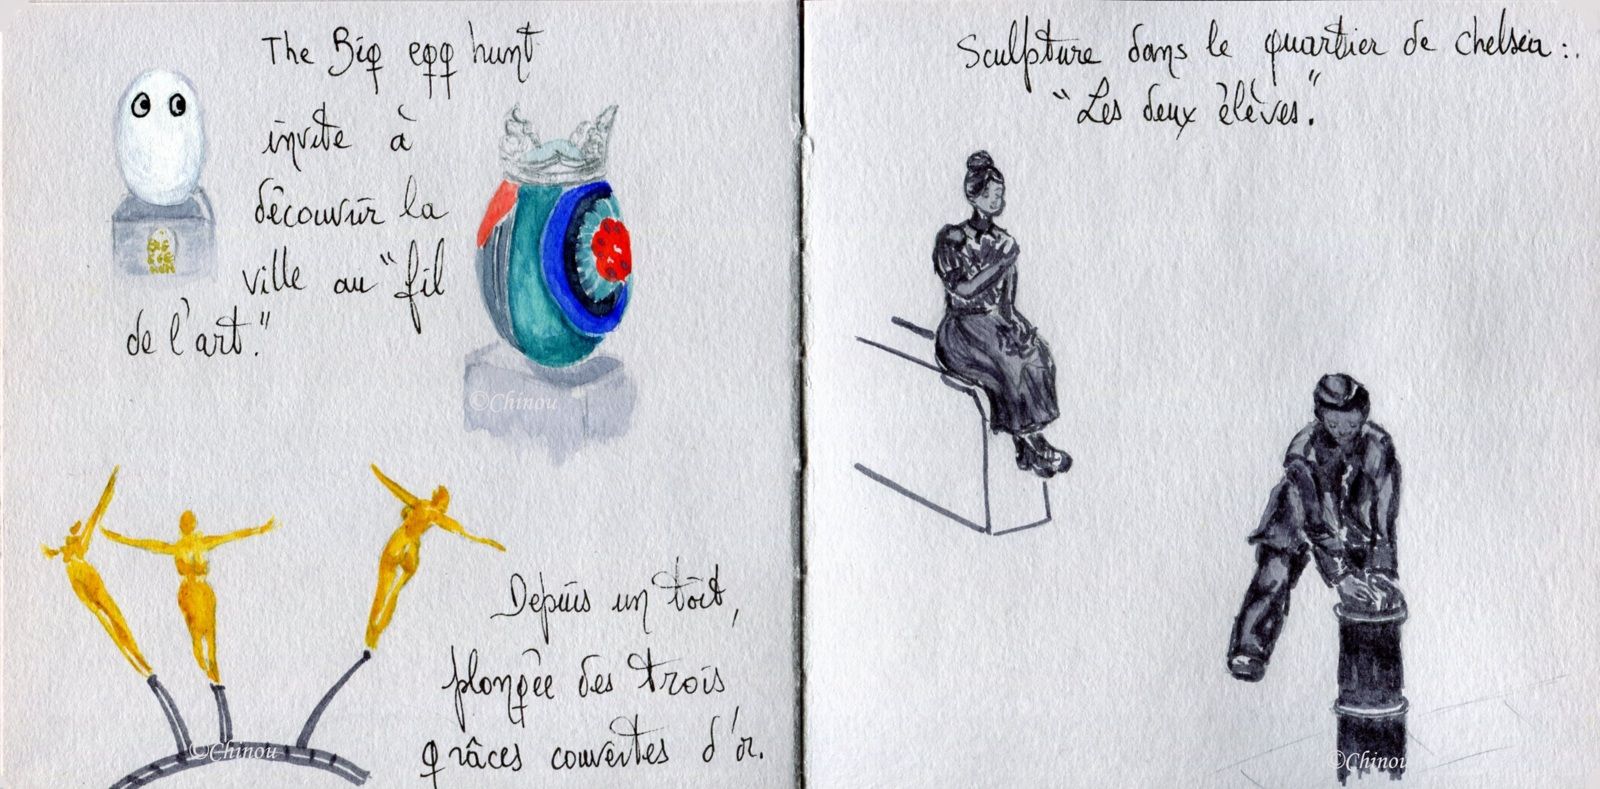 The Big egg hunt
invite à
découvrir la
ville au "fil
de l'art."
BIG
EGG
HUN
©Chinou
Depuis un toit,
plongée des trois
grâces couvertes d'or.
©Chinou
Sculpture dans le quartier de Chelsea :.
"Les deux élèves."
©Chinou